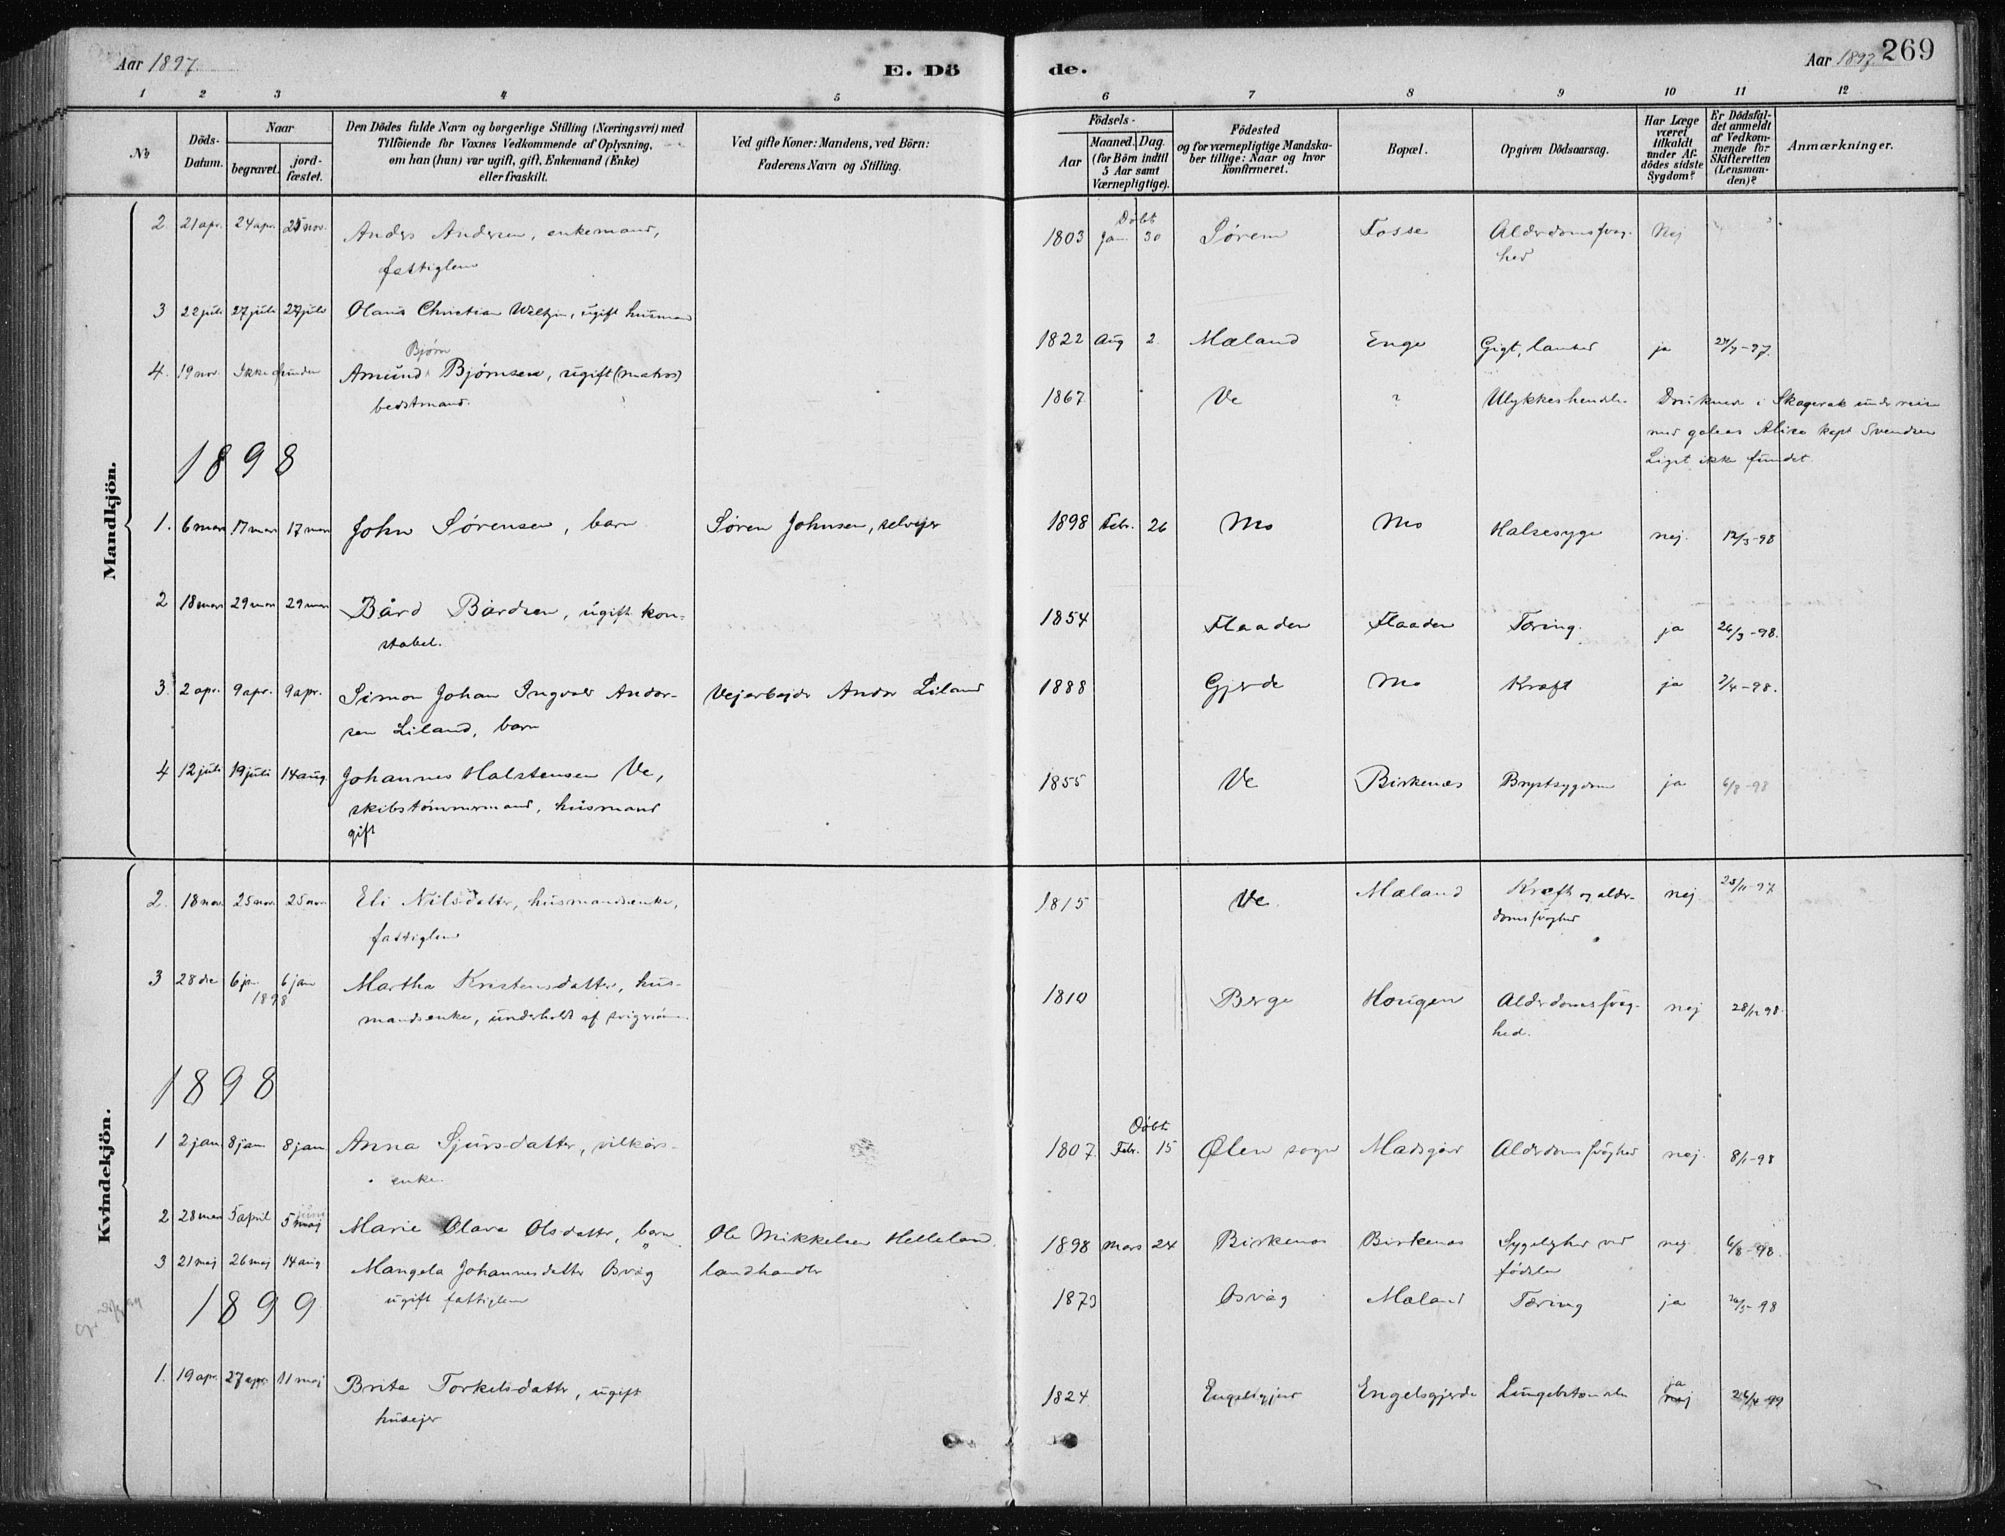 Aar 1897.
E. Dö
de.
Aar 1897
269
1 2 3 4 5 6 7 8 9 10 11 12
No
Döds-
Datum.
Naar
begravet.
jord-
fæstet.
Den Dödes fulde Navn og borgerlige Stilling (Næringsvei) med
Tilföiende for Voxnes Vedkommende af Oplysning,
om han (hun) var ugift, gift, Enkemand (Enke)
eller fraskilt.
Ved gifte Koner: Mandens, ved Börn:
Faderens Navn og Stilling.
Födsels-
Aar
Maaned.
Dag.
(for Börn indtil
5 Aar samt
Værnepligtige).
Födested
og for værnepligtige Mandska-
ber tillige: Naar og hvor
konfirmeret.
Bopæl.
Opgiven Dödsaarsag.
Har Læge
været
tilkaldt
under Af-
dödes sidste
Sygdom?
Er Dödsfal-
det anmeldt
af Vedkom-
mende for
Skifteretten
(Lensman-
den)?
Anmærkninger.
Mandkjön.
2. 21 apr. 24 apr. 25 nov. Anders Andersen, enkemand, 1803 Døbt Jan. 30 Sørem Fosse Alderdomssvag- Nej
fattiglem hed
3 22 juli 27 juli 27 juli Olaus Christian, ugift husmand 1822 Aug 2 Mæland Enge Gigt, ja 27/7-97.
Bjørn
4. 19 nov. Ikke funden Amund Bjørnsen, ugift (matros) 1867 Ve ? Ulykkeshendelse Druknede i Skagerak under reise
bedstmand. med galeas Alise kapt Svendsen
Liget ikke fundet.
1898
1. 6 mars 17 mars 17 mars John Sørensen, barn Søren Johnsen, selvejer 1898 Febr. 26 Mo Mo Halsesyge nej. 12/3-98
2 18 mars 29 mars 29 mars Bård Bårdsen, ugift kon- 1854 Flaaden Flaaden Tæring. ja 26/3-98.
stabel.
3. 2 apr. 9 apr. 9 apr. Simon Johan Ingvald Andor- Vejarbejder Andor Liland 1888 Gjerde Mo Kræft ja 7/4-98.
sen Liland, barn
4 12 juli 19 juli 14 aug. Johannes Halstensen Ve, 1855 Ve Birkenæs Brystsygdom ja 6/8-98
skibstømmermand, husmand
gift
Kvindekjön.
2. 18 nov. 25 nov. 25 nov Eli Nilsdatter, husmandsenke, 1815 Ve. Mæland Kræft og alder- nej 25/11-97
fattiglem domssvaghed
3 28 dec 6 jan. 6 jan Martha Kristensdatter, hus- 1810 Berge Hougen Alderdomssvag- nej
1898 mandsenke, underholdt af svigersøn. hed.
1898
1 2 jan 8 jan 8 jan Anna Sjursdatter, vilkårs- 1807. Døbt Febr. 15 Ølen sogn Madsgård Alderdomssvaghed nej. 8/1-98
enke.
2 28 mars 5 april 5 maj juni Marie Olava Olsdatter, barn Ole Mikkelsen Helleland 1898 Mars 24 Birkenæs Birkenæs Sygelighed ved nej. 6/8-98.
landhandler fødslen
3 21 maj 26 maj 14 aug Mangela Johannesdatter Osvåg 1873 Osvåg Mæland Tæring ja 26/5-98
ugift fattiglem
1899
1. 19 apr. 27 apr. 11 maj Brite Torkelsdatter, ugift 1824 Engelsgjerd Engelsgjerde Lungebetændelse ja nej 26/4-99
husejer